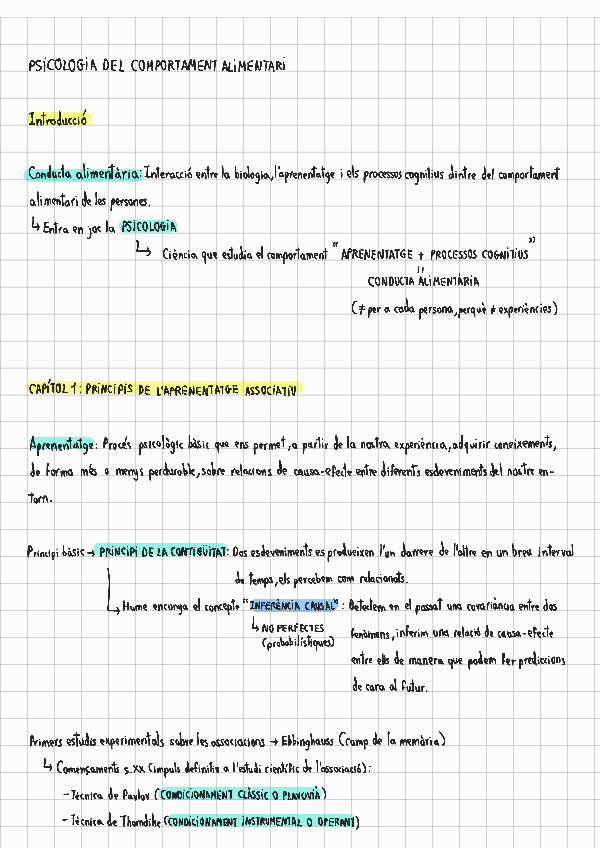 PSICOLOGIA DEL COMPORTAMENT ALIMENTARI
Introducció
Conducta alimentària: Interacció entre la biologia, l'aprenentatge i els processos cognitius dintre del comportament
alimentari de les persones.
↳ Entra en joc la PSICOLOGIA
↳ Ciència que estudia el comportament "APRENENTATGE + PROCESSOS COGNITIUS"
||
CONDUCTA ALIMENTÀRIA
(≠ per a cada persona, perquè ≠ experiències)
CAPÍTOL 1: PRINCIPIS DE L'APRENENTATGE ASSOCIATIU
Aprenentatge: Procés psicològic bàsic que ens permet, a partir de la nostra experiència, adquirir coneixements,
de forma més o menys perdurable, sobre relacions de causa-efecte entre diferents esdeveniments del nostre en-
torn.
Principi bàsic → PRINCIPI DE LA CONTIGÜITAT: Dos esdeveniments es produeixen l'un darrere de l'altre en un breu interval
de temps, els percebem com relacionats.
↳ Hume encunya el concepte "INFERÈNCIA CAUSAL": Detectem en el passat una covariància entre dos
↳ NO PERFECTES fenòmens, inferim una relació de causa-efecte
(probabilístiques) entre ells de manera que podem fer prediccions
de cara al futur.
Primers estudis experimentals sobre les associacions → Ebbinghauss (camp de la memòria)
↳ Començaments s.XX (impuls definitiu a l'estudi científic de l'associació):
- Tècnica de Pavlov (CONDICIONAMENT CLÀSSIC O PLAVOVIÀ)
- Tècnica de Thorndike (CONDICIONAMENT INSTRUMENTAL O OPERANT)